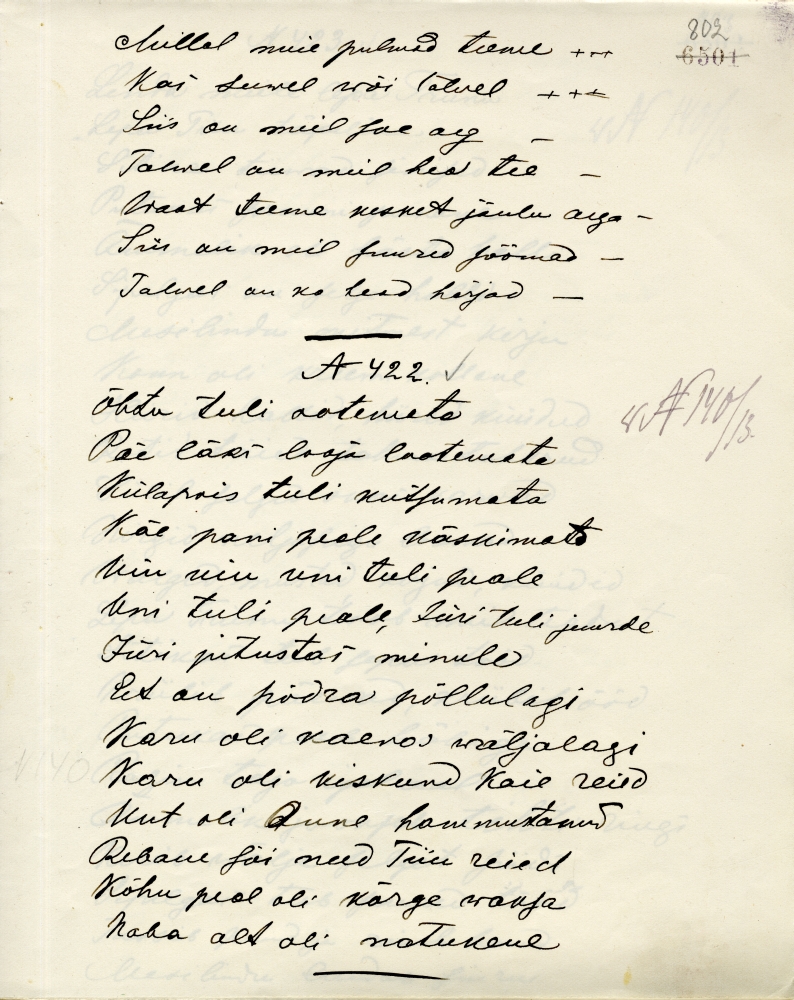 802
6501
Millal meie pulmad teeme +++
Kas suwel wöi talwel +++
Siis on meil soe aeg —
Talwel on meil hea tee —
Waat teeme kesket jöulu aega —
Siis on meil suured söömad —
Talwel on ka head härjad —
№ 422.
Öhtu tuli ootemeta
Päe läks looja lootemata
Külapois tuli kutsumata
Käe pani peale käskimata
Uiu uiu uni tuli peale
Uni tuli peale, Jüri tuli juurde
Jüri jutustas minule
Et on pödra pöllulagi
Karu oli kaeras wäljalagi
Karu oli kiskund Kaie reied
Unt oli Anne hammustanud
Rebane söi need Tiiu reied
Köhu peal oli körge waksa
Naba alt oli natukene
№ 140/13.